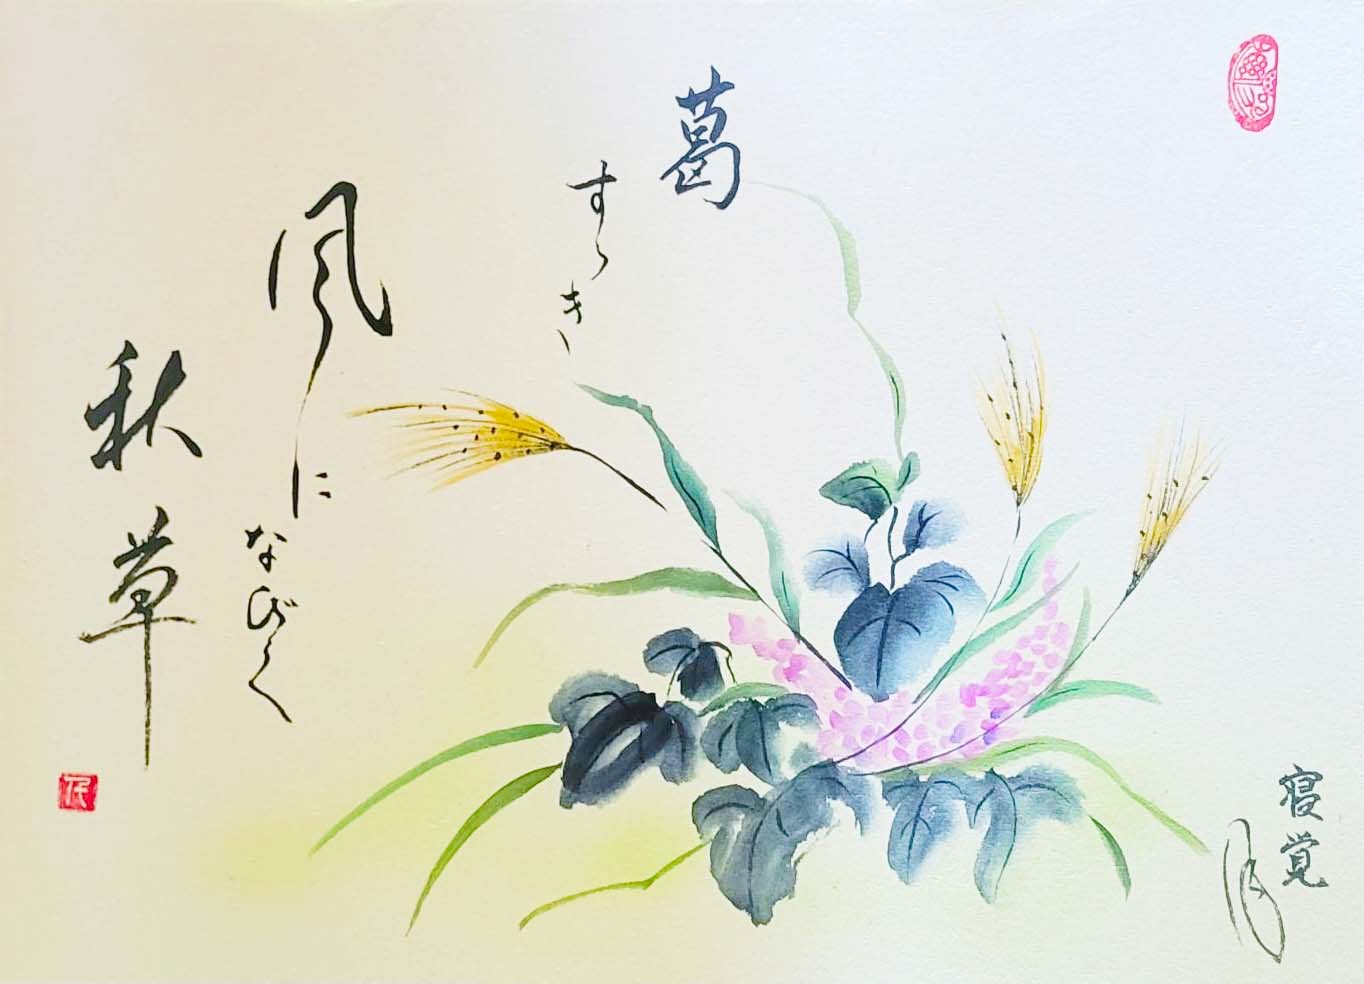 葛
すゝき
風に
なびく
秋草
寝覚
月